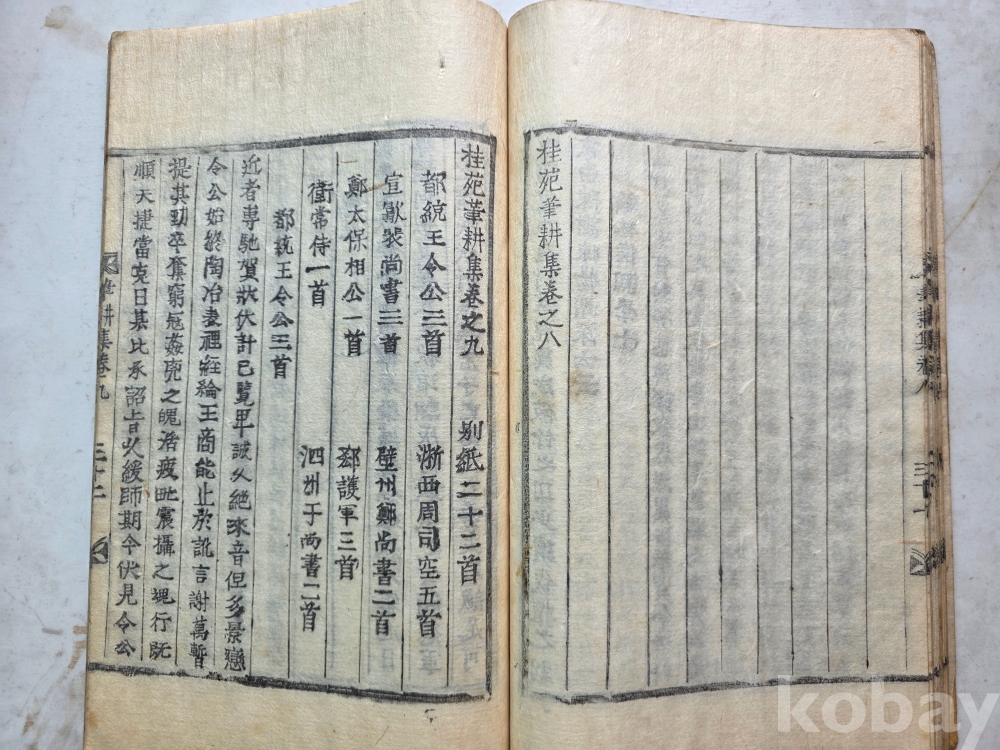 桂苑筆耕集卷之八
筆耕集卷八
三十一
桂苑筆耕集卷之九 別紙二十二首
都統王令公三首 浙西周司空五首
宣歙裴尚書三首 壁州鄭尚書二首
鄭太保相公一首 郄護軍三首
衛常侍一首 泗州于尚書二首
都統王令公三首
近者專馳賀狀伏計已覽卑誠久絶來音但多景戀
令公始終陶冶表裡經綸王商能止於訛言謝萬暫
提其勁卒奪窮寇姦兇之魄活疲甿震攝之魂行既
順天捷當克日某比承詔旨以緩師期今伏見令公
筆耕集卷九
三十二
kobay